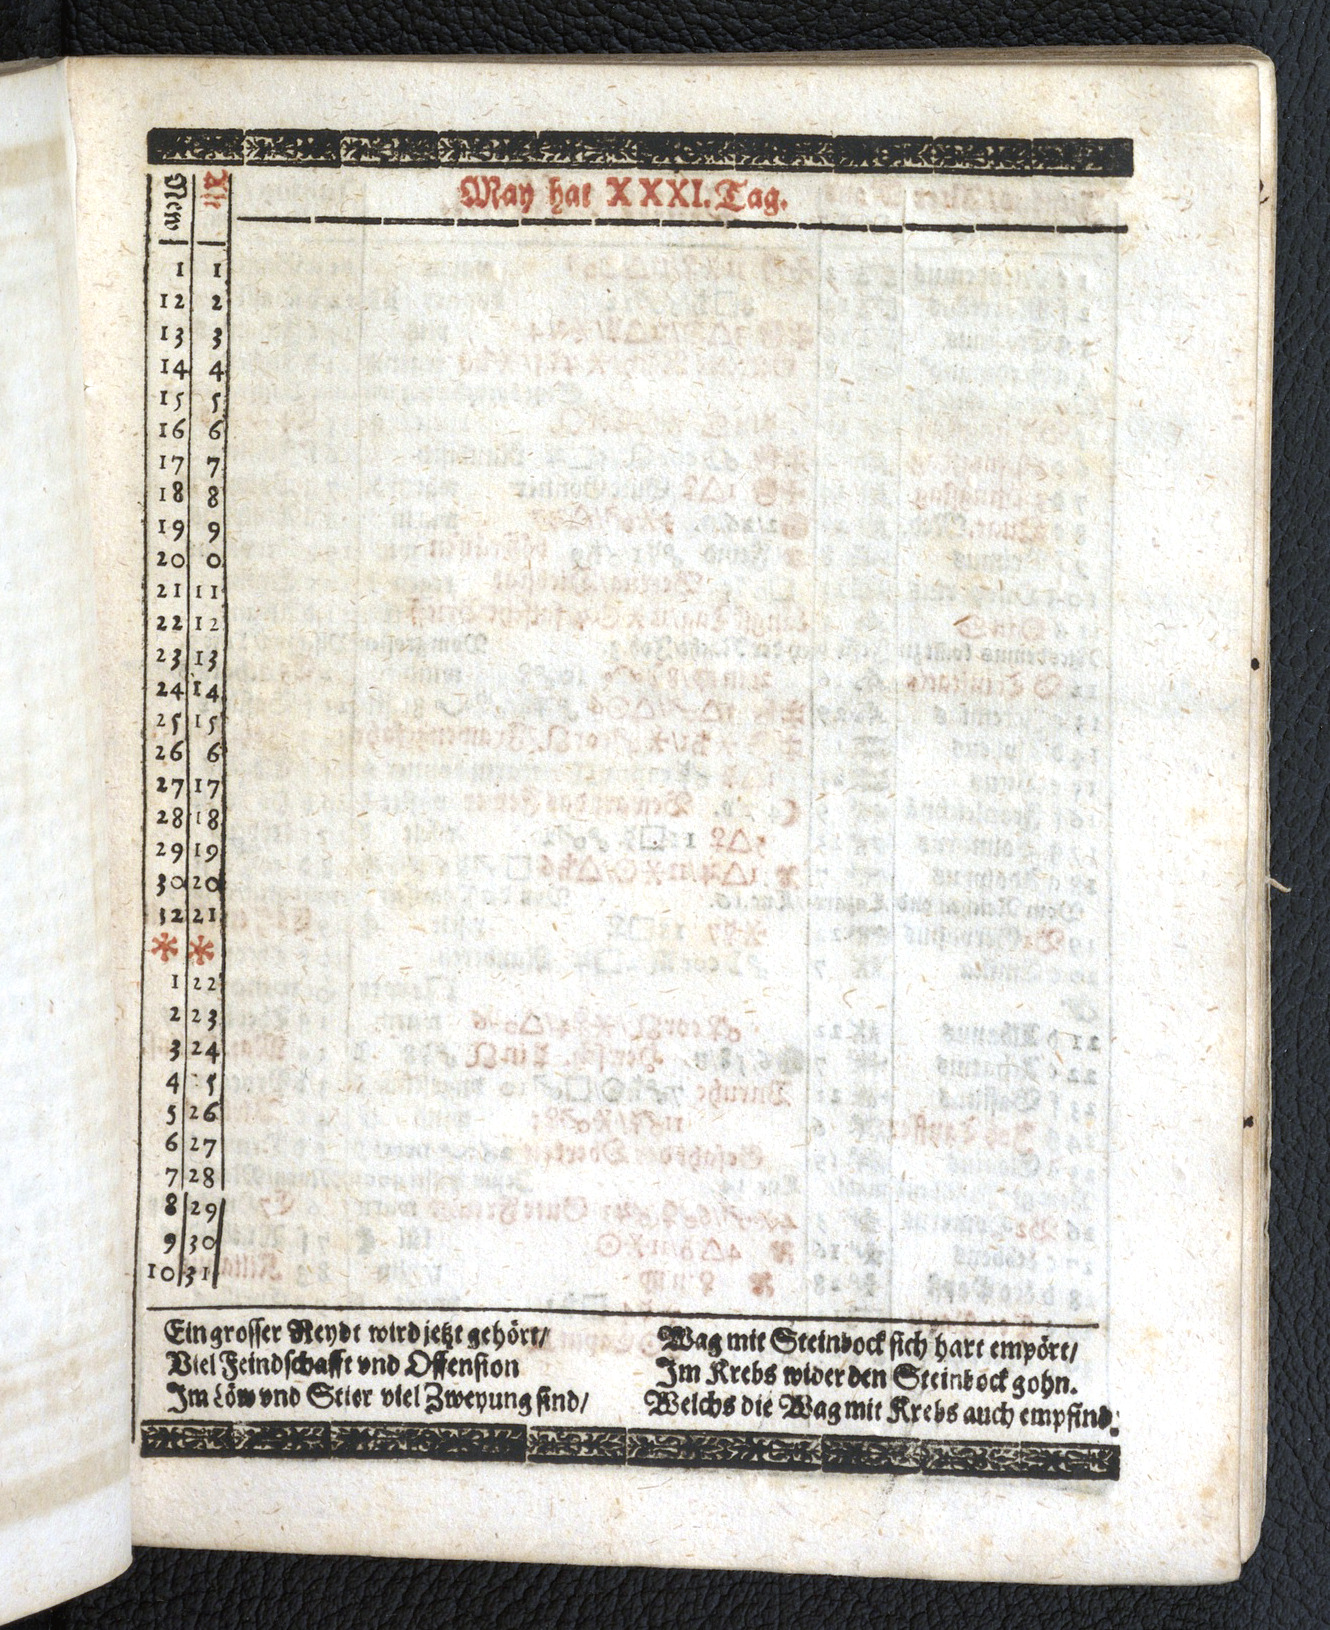 New Alt
May hat XXXI. Tag.
1 1
12 2
13 3
14 4
15 5
16 6
17 7
18 8
19 9
20 0
21 11
22 12
23 13
24 14
25 15
26 6
27 17
28 18
29 19
30 20
32 21
* *
1 22
2 23
3 24
4 5
5 26
6 27
7 28
8 29
9 30
10 31
Ein grosser Reydt wird jetzt gehört/
Viel Feindschafft vnd Offension
Im Löw vnd Stier viel Zweyung sind/
Wag mit Steinbock sich hart empört/
Im Krebs wider den Steinbock gohn.
Welchs die Wag mit Krebs auch empfind: